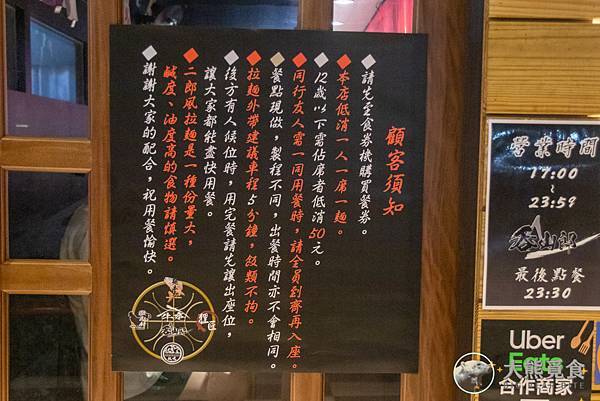 顧客須知
◆請先至食券機購買餐券。
◆本店低消一人一席一麵。
◆12歲以下需佔席者低消50元。
◆同行友人需一同用餐時,請全員到齊再入座。
◆餐點現做,製程不同,出餐時間亦不會相同。
◆拉麵外帶建議車程5分鐘,飯類不拘。
◆後方有人候位時,用完餐請先讓出座位,
讓大家都能盡快用餐。
◆二郎風拉麵是一種份量大,
鹹度、油度高的食物請慎選。
◆謝謝大家的配合,祝用餐愉快。
營業時間
17:00
~
23:59
最後點餐
23:30
Uber
Eats
合作商家
大熊覓食